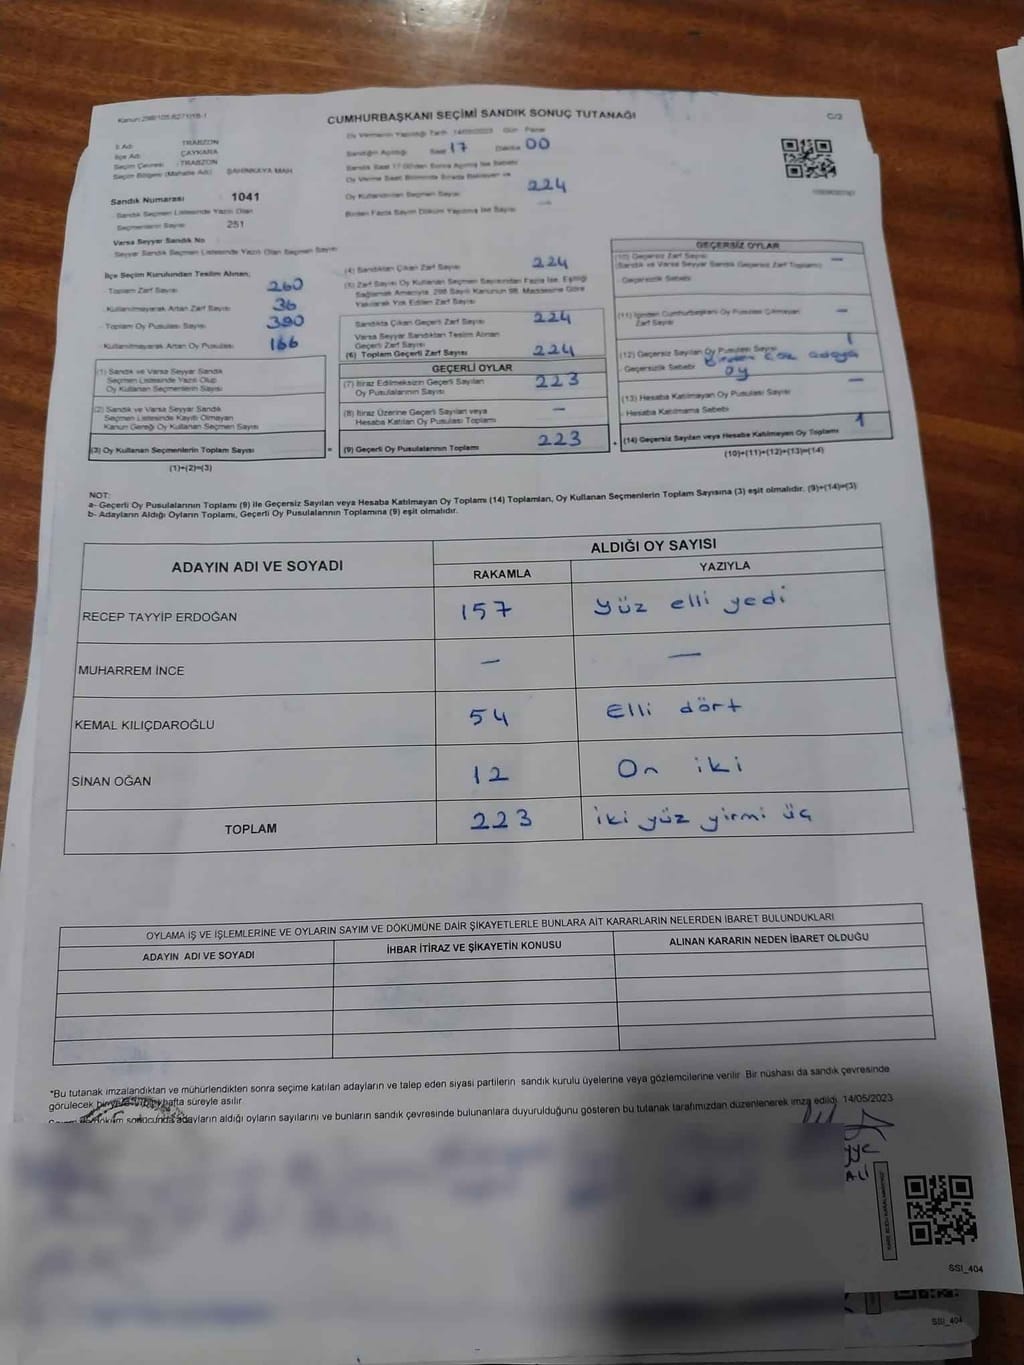 Kanun:298/105,6271/18-1
CUMHURBAŞKANI SEÇİMİ SANDIK SONUÇ TUTANAĞI
C/2
İl Adı: TRABZON
İlçe Adı: ÇAYKARA
Seçim Çevresi: TRABZON
Seçim Bölgesi (Mahalle Adı): ŞAHİNKAYA MAH
Sandık Numarası 1041
Sandık Seçmen Listesinde Yazılı Olan
Seçmenlerin Sayısı 251
Varsa Seyyar Sandık No
Seyyar Sandık Seçmen Listesinde Yazılı Olan Seçmen Sayısı
Oy Vermenin Yapıldığı Tarih 14/05/2023 Gün Pazar
Sandığın Açıldığı Saat 17 Dakika 00
Sandık Saat 17:00'den Sonra Açılmış İse Sebebi
Oy Verme Saati Bitiminde Sırada Bekleyen ve
Oy Kullandırılan Seçmen Sayısı 224
Birden Fazla Sayım Döküm Yapılmış İse Sayısı —
İlçe Seçim Kurulundan Teslim Alınan;
- Toplam Zarf Sayısı 260
- Kullanılmayarak Artan Zarf Sayısı 36
- Toplam Oy Pusulası Sayısı 390
- Kullanılmayarak Artan Oy Pusulası 166
(1) Sandık ve Varsa Seyyar Sandık
Seçmen Listesinde Yazılı Olup
Oy Kullanan Seçmenlerin Sayısı
(2) Sandık ve Varsa Seyyar Sandık
Seçmen Listesinde Kayıtlı Olmayan
Kanun Gereği Oy Kullanan Seçmen Sayısı
(3) Oy Kullanan Seçmenlerin Toplam Sayısı
(1)+(2)=(3)
=
(4) Sandıktan Çıkan Zarf Sayısı 224
(5) Zarf Sayısı Oy Kullanan Seçmen Sayısından Fazla İse, Eşitliği
Sağlamak Amacıyla, 298 Sayılı Kanunun 98. Maddesine Göre
Yakılarak Yok Edilen Zarf Sayısı
Sandıkta Çıkan Geçerli Zarf Sayısı 224
Varsa Seyyar Sandıktan Teslim Alınan
Geçerli Zarf Sayısı
(6) Toplam Geçerli Zarf Sayısı 224
GEÇERLİ OYLAR
(7) İtiraz Edilmeksizin Geçerli Sayılan
Oy Pusulalarının Sayısı 223
(8) İtiraz Üzerine Geçerli Sayılan veya
Hesaba Katılan Oy Pusulası Toplamı —
(9) Geçerli Oy Pusulalarının Toplamı 223
+
GEÇERSİZ OYLAR
(10) Geçersiz Zarf Sayısı
(Sandık ve Varsa Seyyar Sandık Geçersiz Zarf Toplamı) —
- Geçersizlik Sebebi
(11) İçinden Cumhurbaşkanı Oy Pusulası Çıkmayan
Zarf Sayısı —
(12) Geçersiz Sayılan Oy Pusulası Sayısı 1
- Geçersizlik Sebebi Birden çok adaya
oy
(13) Hesaba Katılmayan Oy Pusulası Sayısı —
- Hesaba Katılmama Sebebi
(14) Geçersiz Sayılan veya Hesaba Katılmayan Oy Toplamı 1
(10)+(11)+(12)+(13)=(14)
NOT:
a- Geçerli Oy Pusulalarının Toplamı (9) ile Geçersiz Sayılan veya Hesaba Katılmayan Oy Toplamı (14) Toplamları, Oy Kullanan Seçmenlerin Toplam Sayısına (3) eşit olmalıdır. (9)+(14)=(3)
b- Adayların Aldığı Oyların Toplamı, Geçerli Oy Pusulalarının Toplamına (9) eşit olmalıdır.
ADAYIN ADI VE SOYADI
ALDIĞI OY SAYISI
RAKAMLA YAZIYLA
RECEP TAYYİP ERDOĞAN 157 yüz elli yedi
MUHARREM İNCE — —
KEMAL KILIÇDAROĞLU 54 Elli dört
SİNAN OĞAN 12 On iki
TOPLAM 223 iki yüz yirmi üç
OYLAMA İŞ VE İŞLEMLERİNE VE OYLARIN SAYIM VE DÖKÜMÜNE DAİR ŞİKAYETLERLE BUNLARA AİT KARARLARIN NELERDEN İBARET BULUNDUKLARI
ADAYIN ADI VE SOYADI İHBAR İTİRAZ VE ŞİKAYETİN KONUSU ALINAN KARARIN NEDEN İBARET OLDUĞU
*Bu tutanak imzalandıktan ve mühürlendikten sonra seçime katılan adayların ve talep eden siyasi partilerin sandık kurulu üyelerine veya gözlemcilerine verilir. Bir nüshası da sandık çevresinde
görülecek bir yere bir hafta süreyle asılır.
sonucunda adayların aldığı oyların sayılarını ve bunların sandık çevresinde bulunanlara duyurulduğunu gösteren bu tutanak tarafımızdan düzenlenerek imza edildi. 14/05/2023
ALİ
SSI_404
SSI_404